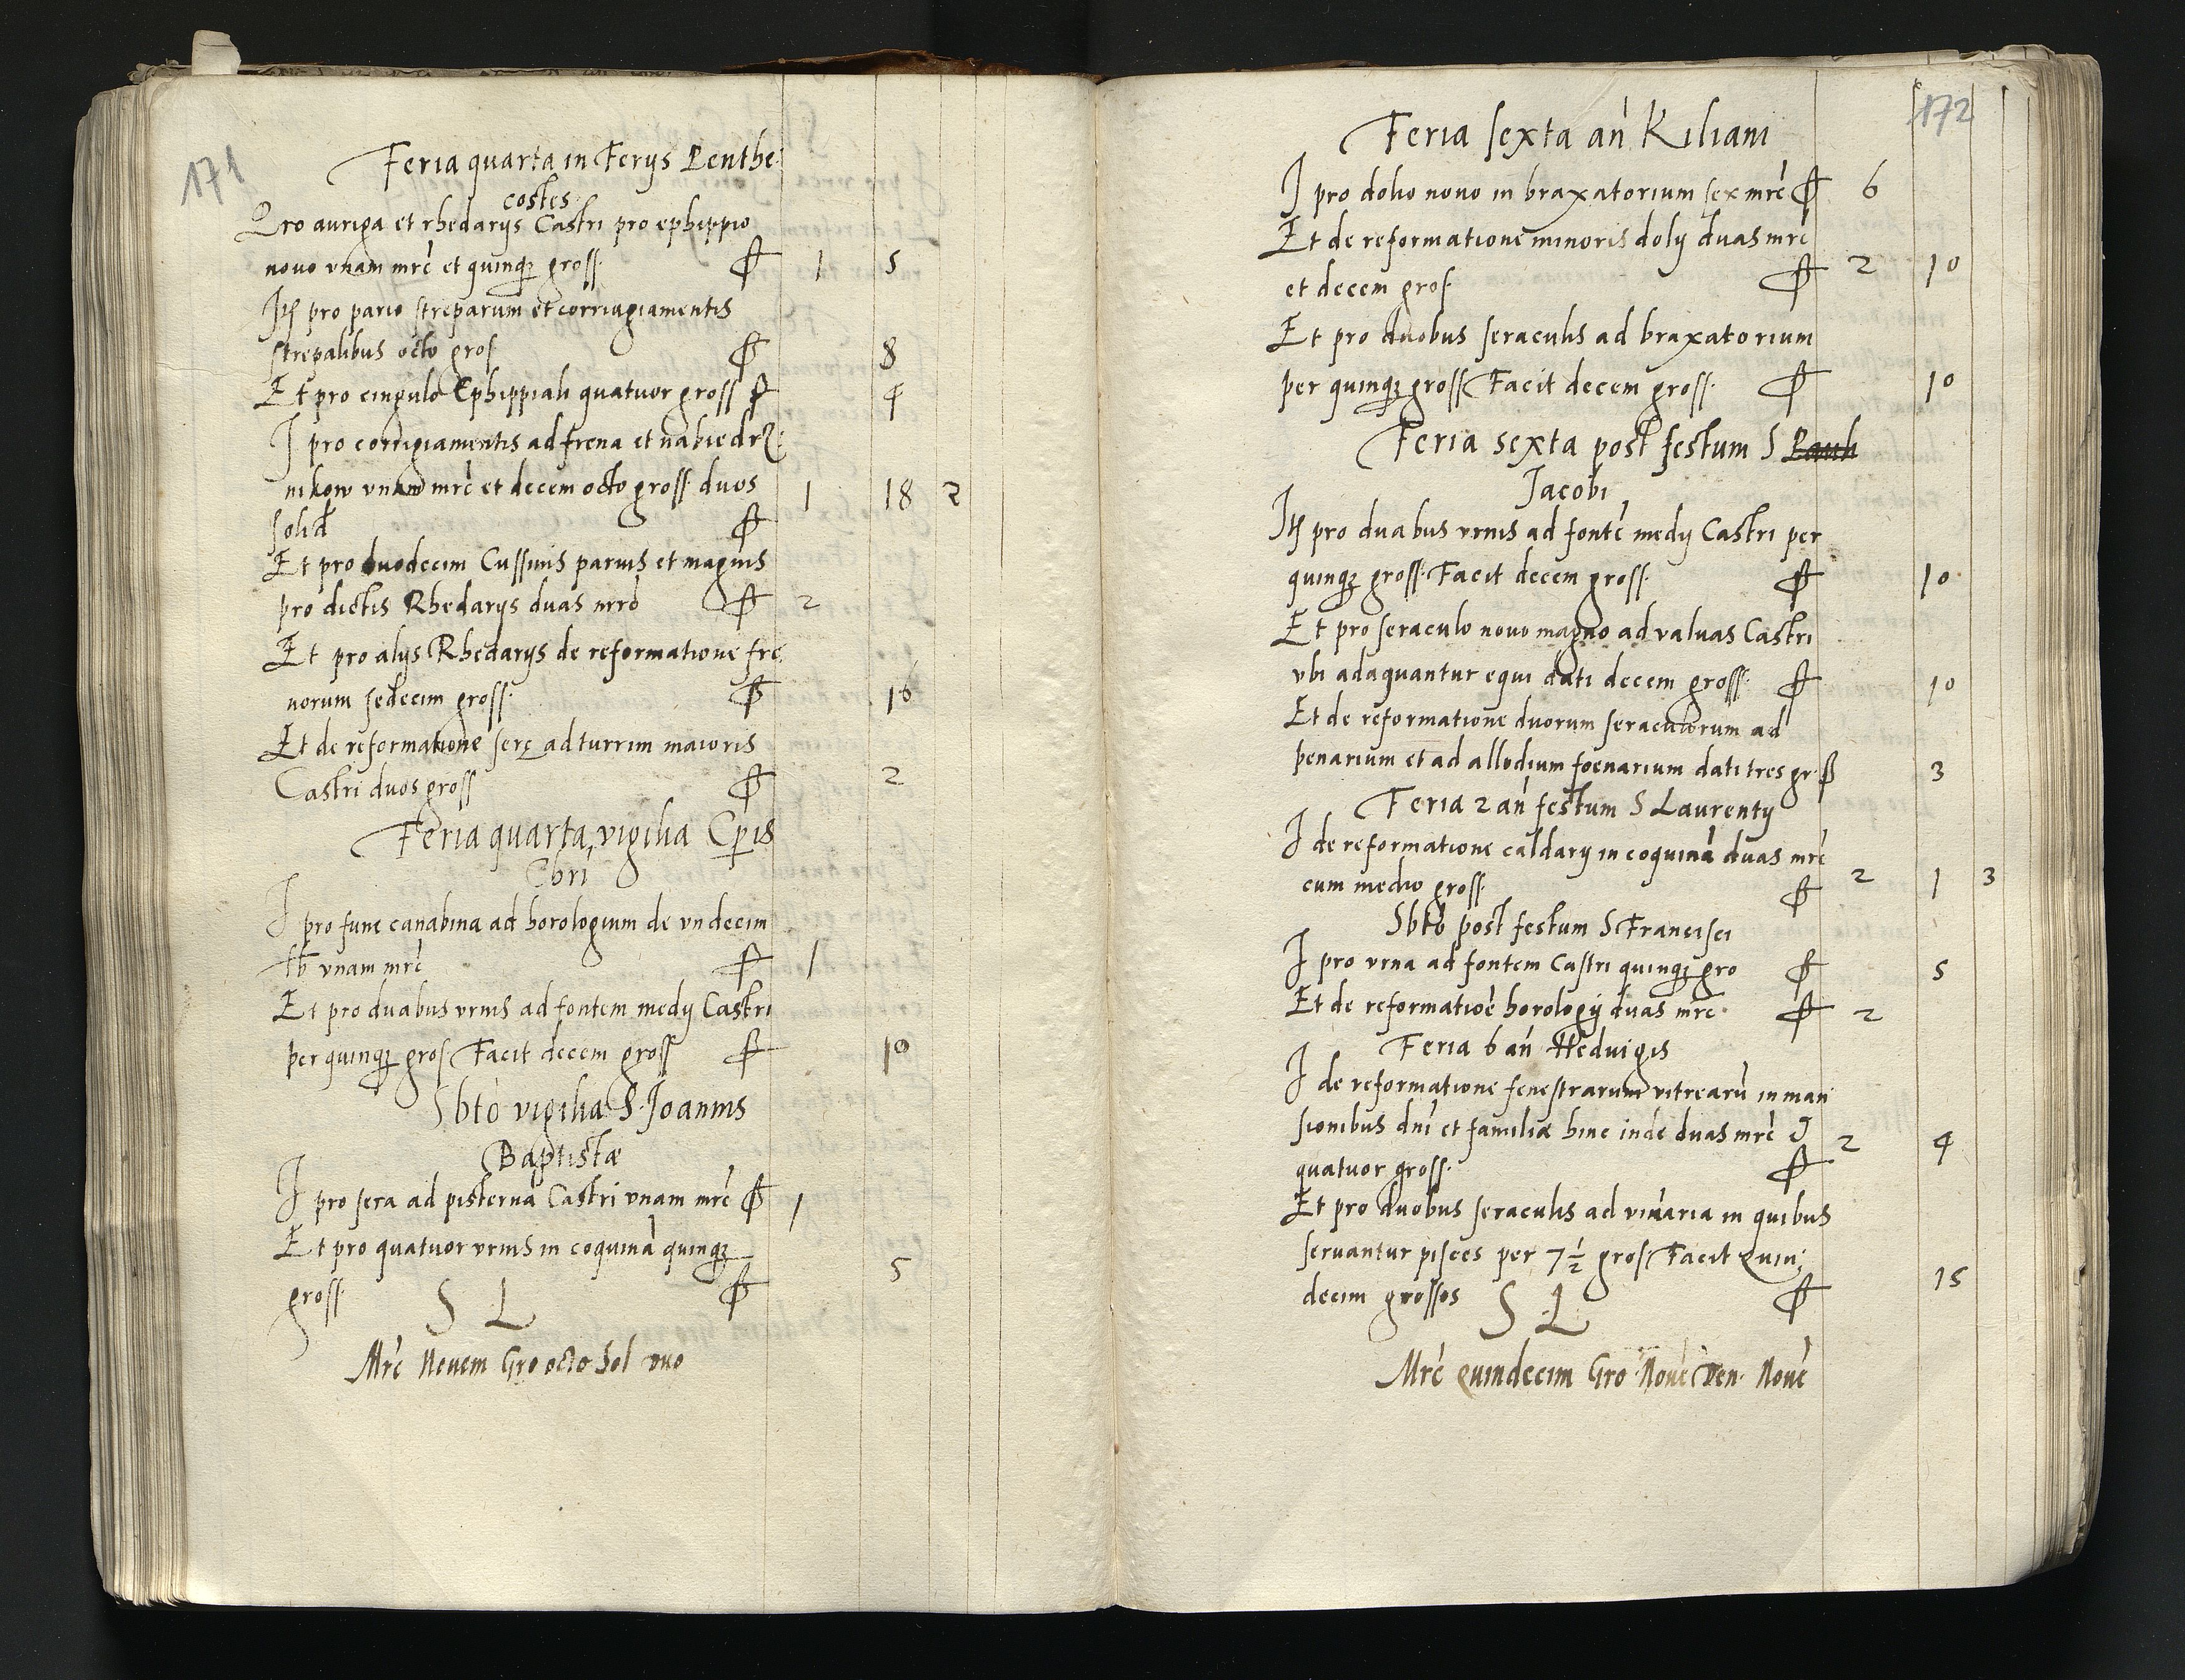 171
Feria quarta in Ferijs Penthe:
costes
Pro auriga et rhedarijs Castri pro ephippio
nouo vnam mrc et quinq3 gross. 1 5
Itē pro pario streparum et corriagiamentis
strepalibus octo gros 8
Et pro cingulo Ephippiali quatuor gross 4
I pro corrigiamentis ad frena et nabiedrze:
nikow vnam mrc et decem octo gross duos 1 18 2
solid
Et pro duodecim Cussinis paruis et magnis
pro dictis Rhedarijs duas mrc 2
Et pro alijs Rhedarijs de reformatione fre:
norum sedecim gross. 16
Et de reformatione serę ad turrim maioris
Castri duos gross 2
Feria quarta, vigilia Cpis
Chri
I pro fune canabina ad horologium de vndecim
lb vnam mrc 1
Et pro duabus vrnis ad fontem medij Castri
per quinq3 gros Facit decem gross 10
Sbto vigilia S. Joannis
Baptistæ
I pro sera ad pisternā Castri vnam mrc 1
Et pro quatuor vrnis in coquinā quinq3
gross. 5
S L
Mrc Nouem Gro octo Sol duo
172
Feria sexta añ Kiliani
I pro dolio nouo in braxatorium sex mrc 6
Et de reformatione minoris dolij duas mrc
et decem gros 2 10
Et pro duobus seraculis ad braxatorium
per quinq3 gross Facit decem gross. 10
Feria sexta post festum S Pauli
Jacobi
Itē pro duabus vrnis ad fontē medij Castri per
quinq3 gross. Facit decem gross. 10
Et pro seraculo nouo magno ad valuas Castri
vbi adaquantur equi dati decem gross. 10
Et de reformatione duorum seraculorum ad
penarium et ad allodium foenarium dati tres gr. 3
Feria 2 añ festum S Laurentij
I de reformatione caldarij in coquinā duas mrc
cum medio gross. 2 1 3
Sbto post festum S Francisci
I pro vrna ad fontem Castri quinq3 gro 5
Et de reformatioē horologij duas mrc. 2
Feria 6 añ Heduigis
I de reformatione fenestrarum vitrearū in man
sionibus dni et familiæ hinc inde duas mrc 2 4
quatuor gross.
Et pro duobus seraculis ad viuaria in quibus
seruantur pisces per 7½ gros Facit Quin:
decim grossos 15
S L
Mrc quindecim Gro Nouē Den. Nouē